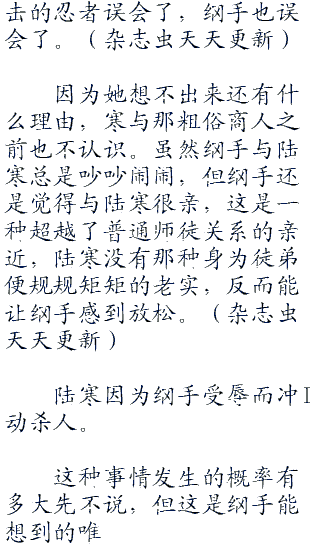 击的忍者误会了，纲手也误
会了。（杂志虫天天更新）
因为她想不出来还有什
么理由，寒与那粗俗商人之
前也不认识。虽然纲手与陆
寒总是吵吵闹闹，但纲手还
是觉得与陆寒很亲，这是一
种超越了普通师徒关系的亲
近，陆寒没有那种身为徒弟
便规规矩矩的老实，反而能
让纲手感到放松。（杂志虫
天天更新）
陆寒因为纲手受辱而冲
动杀人。
这种事情发生的概率有
多大先不说，但这是纲手能
想到的唯